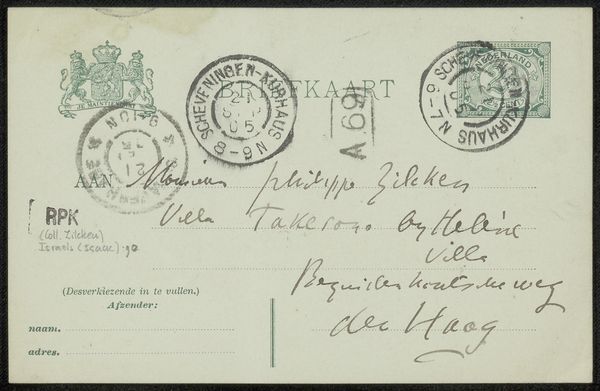 BRIEFKAART
JE MAINTIENDRAI
NEDERLAND
SCHEVENINGEN-KURHAUS
8-9N
05
SCHEVENINGEN-KURHAUS N 7-9
A69
AAN Monsieur Philippe Zilcken
Villa
by Helène
Villa
Bezuidenhoutscheweg
den Haag
RPK
(Coll. Zilcken)
Israels (Isaac).
(Desverkiezende in te vullen.)
Afzender:
naam.
adres.